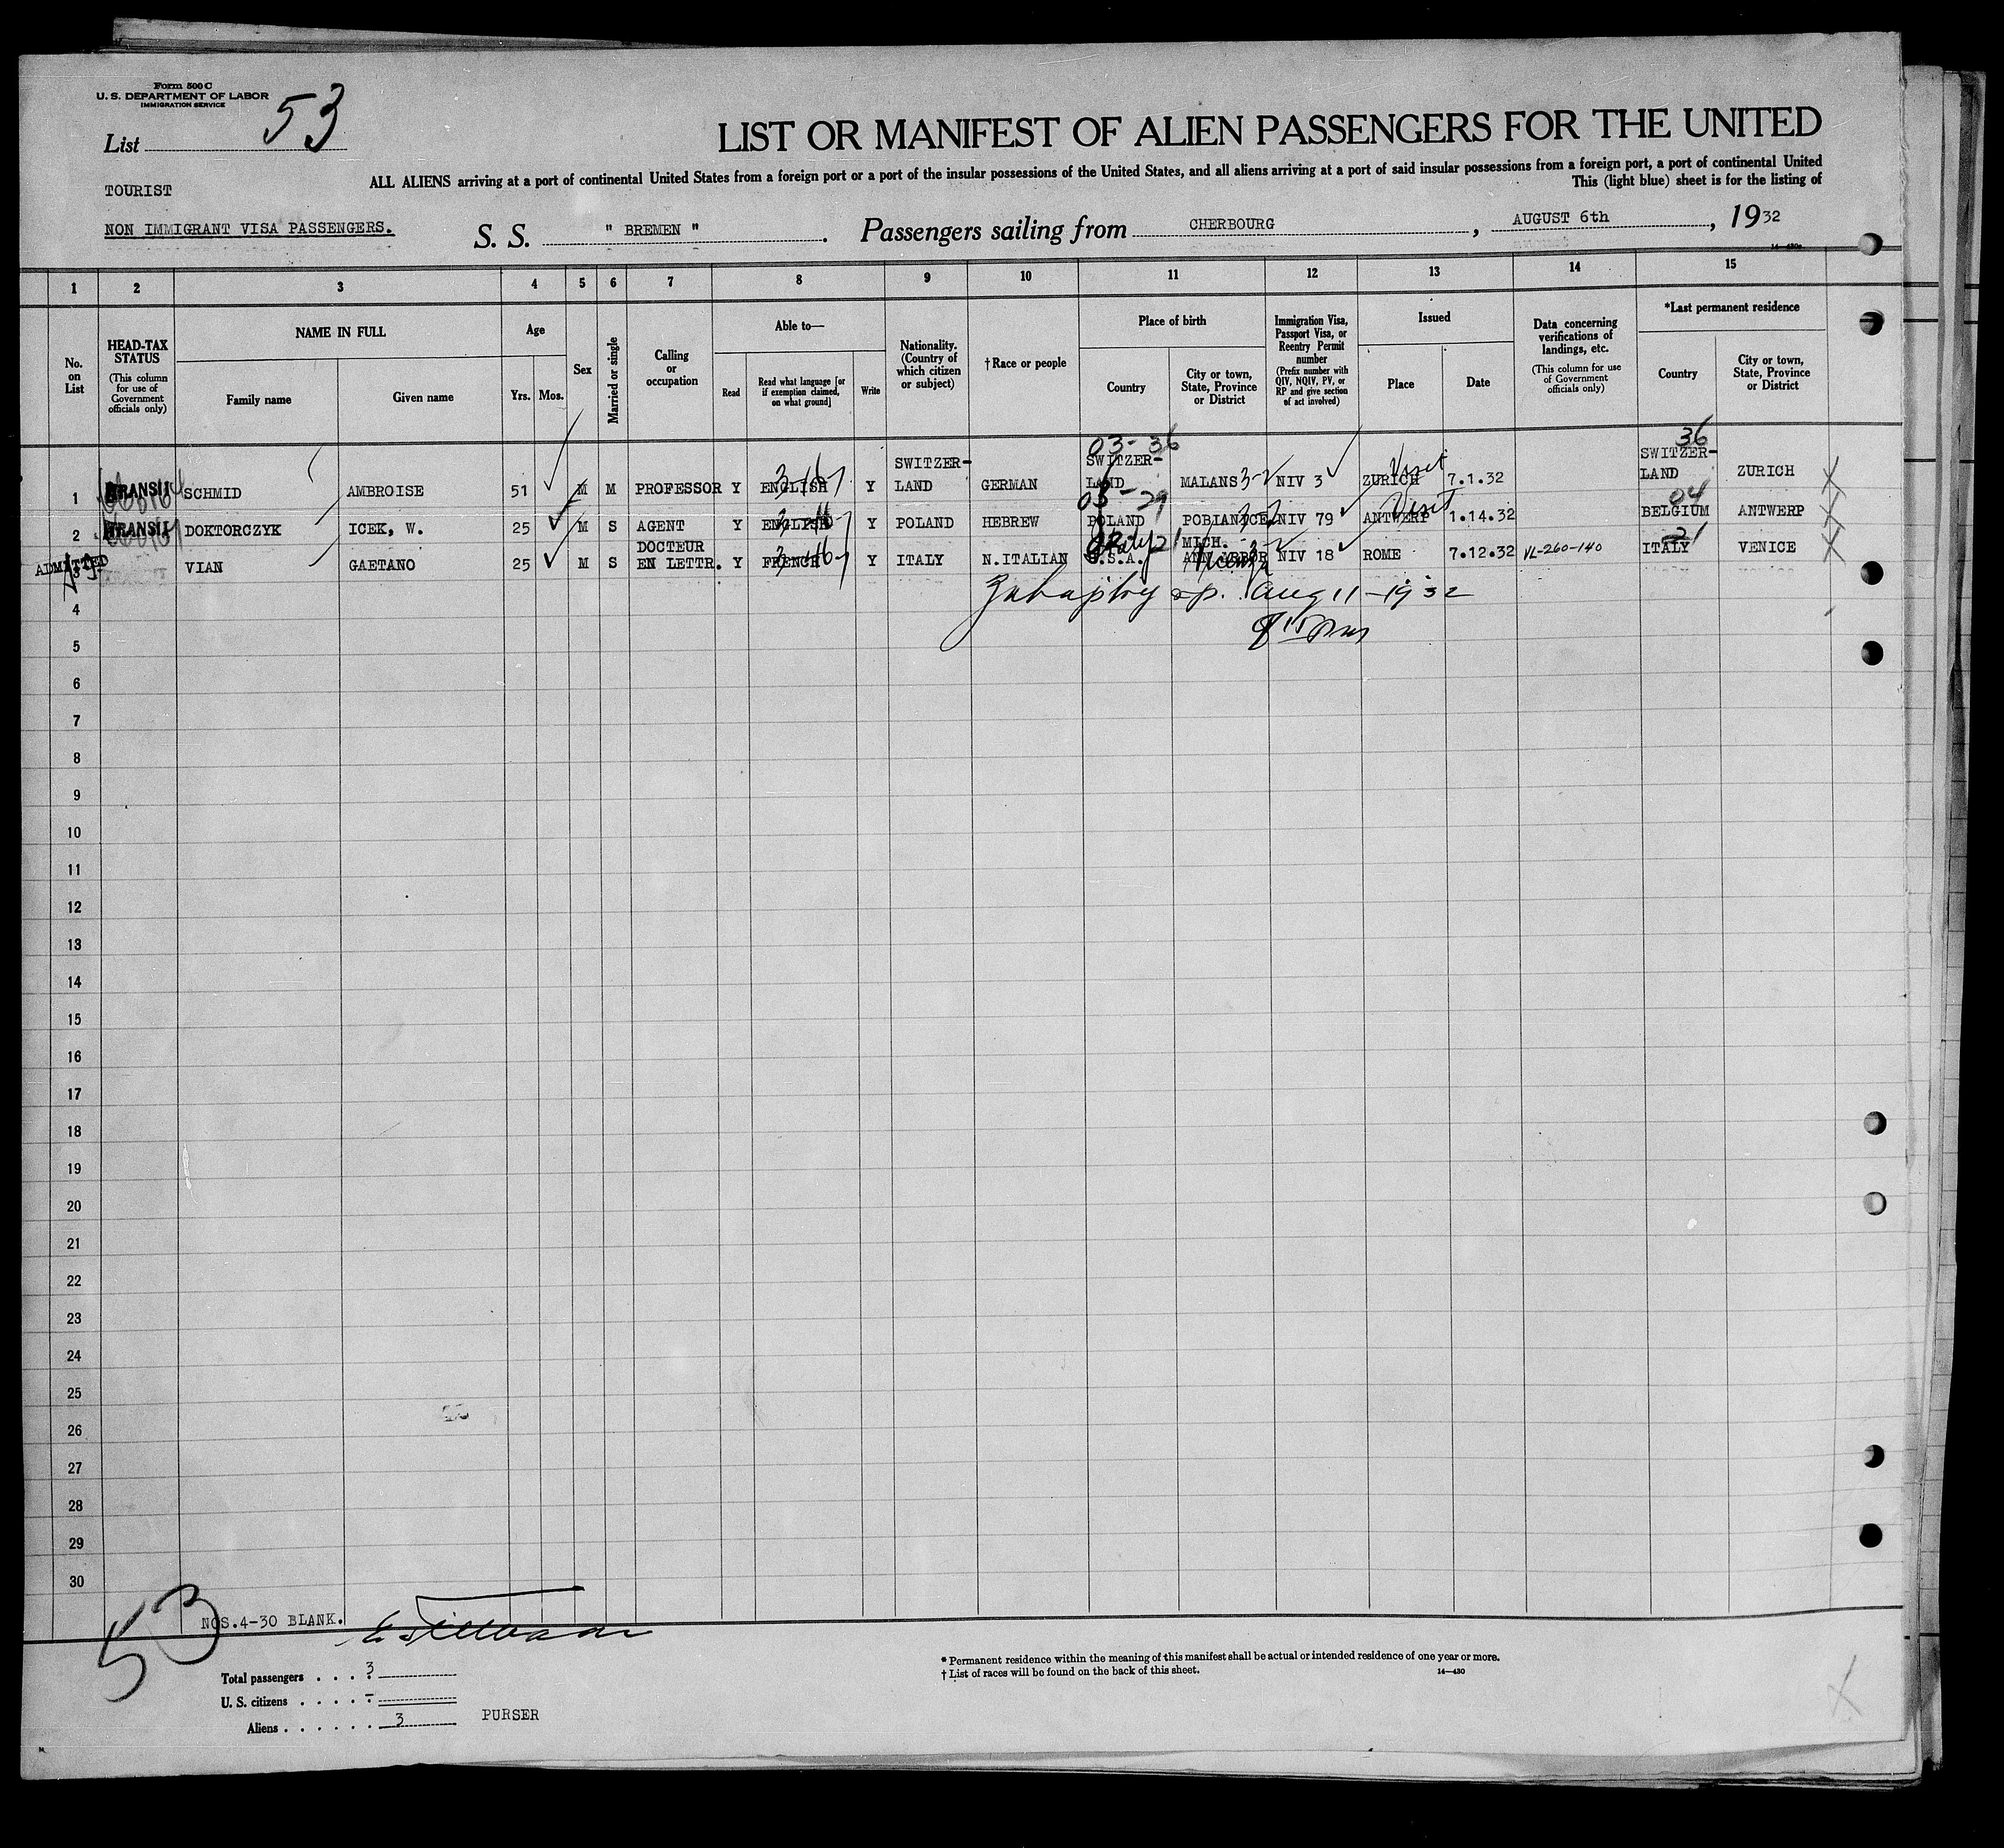 Form 500 C
U. S. DEPARTMENT OF LABOR
IMMIGRATION SERVICE
List 53
LIST OR MANIFEST OF ALIEN PASSENGERS FOR THE UNITED
ALL ALIENS arriving at a port of continental United States from a foreign port or a port of the insular possessions of the United States, and all aliens arriving at a port of said insular possessions from a foreign port, a port of continental United
This (light blue) sheet is for the listing of
TOURIST
NON IMMIGRANT VISA PASSENGERS.
S. S. " BREMEN ". Passengers sailing from CHERBOURG, AUGUST 6th, 1932
1 2 3 4 5 6 7 8 9 10 11 12 13 14 15
No. on List
HEAD-TAX STATUS (This column for use of Government officials only)
NAME IN FULL
Family name
Given name
Age
Yrs. Mos.
Sex
Married or single
Calling or occupation
Able to—
Read
Read what language [or if exemption claimed, on what ground]
Write
Nationality. (Country of which citizen or subject)
† Race or people
Place of birth
Country
City or town, State, Province or District
Immigration Visa, Passport Visa, or Reentry Permit number (Prefix number with QIV, NQIV, PV, or RP and give section of act involved)
Issued
Place
Date
Data concerning verifications of landings, etc. (This column for use of Government officials only)
*Last permanent residence
Country
City or town, State, Province or District
03-36
36
1 TRANSIT SCHMID AMBROISE 51 M M PROFESSOR Y ENGLISH Y SWITZER-LAND GERMAN SWITZER-LAND MALANS NIV 3 ZURICH Visit 7.1.32 SWITZER-LAND ZURICH
03-29
04
2 TRANSIT DOKTORCZYK ICEK, W. 25 M S AGENT Y ENGLISH Y POLAND HEBREW POLAND POBIANICE NIV 79 ANTWERP Visit 1.14.32 BELGIUM ANTWERP
21
3 ADMITTED VIAN GAETANO 25 M S DOCTEUR EN LETTR. Y FRENCH Y ITALY N.ITALIAN U.S.A. Italy MICH. ANN ARBOR Vicenza NIV 18 ROME 7.12.32 VL-260-140 ITALY VENICE
Aug 11-1932
4
5
6
7
8
9
10
11
12
13
14
15
16
17
18
19
20
21
22
23
24
25
26
27
28
29
30
53
NOS.4-30 BLANK.
Total passengers . . . . 3
U. S. citizens . . . . . -
Aliens . . . . . . 3
PURSER
* Permanent residence within the meaning of this manifest shall be actual or intended residence of one year or more.
† List of races will be found on the back of this sheet.
14—430